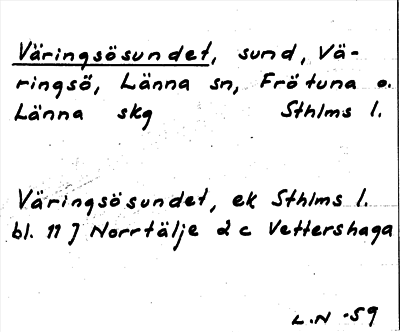 Väringsösundet, sund, Vä-
ringsö, Länna sn, Frötuna o.
Länna skg Sthlms l.
Väringsösundet, ek Sthlms l.
bl. 11 J Norrtälje 2 c Vettershaga
L.N -59